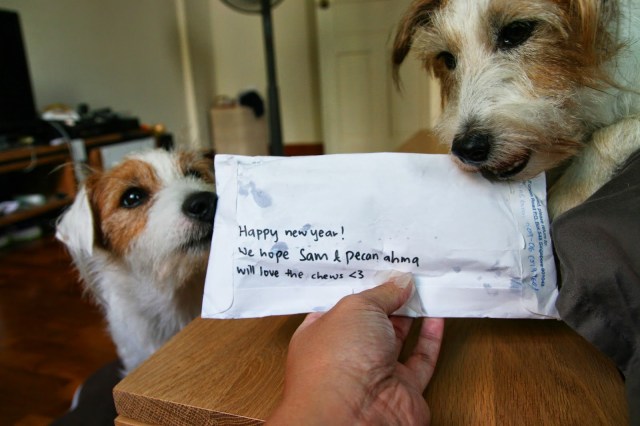 Happy new year!
We hope Sam & pecan ahma
will love the chews <3